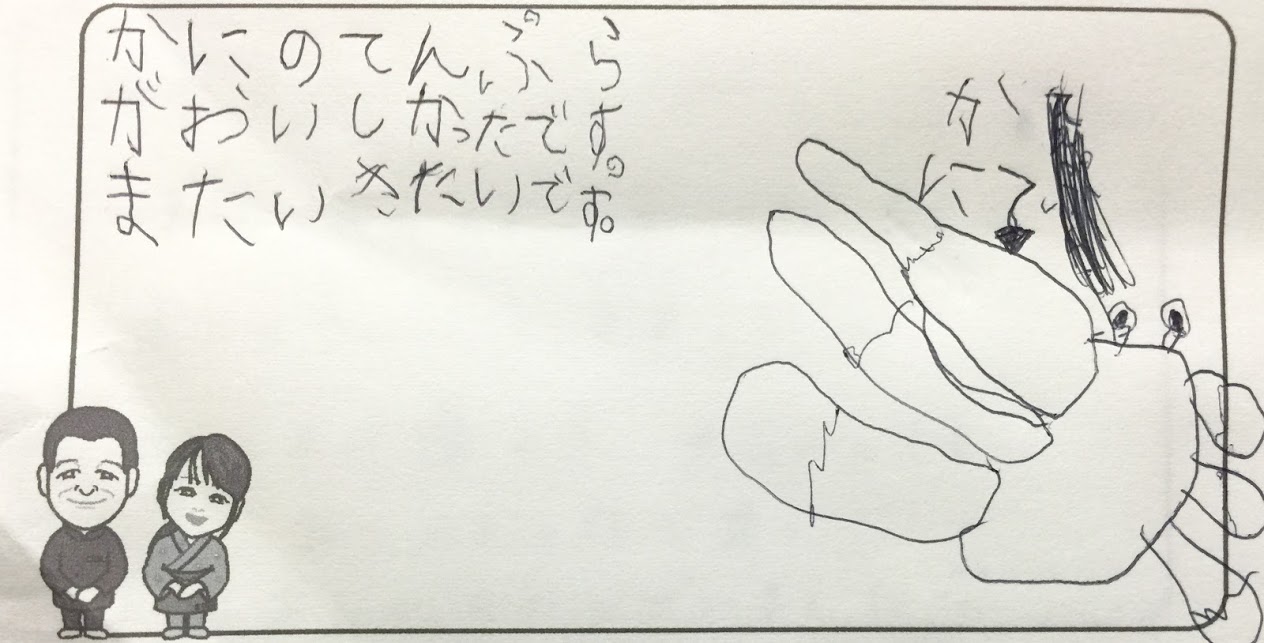 かにのてんぷら
がおいしかったです。
またいきたいです。
かに